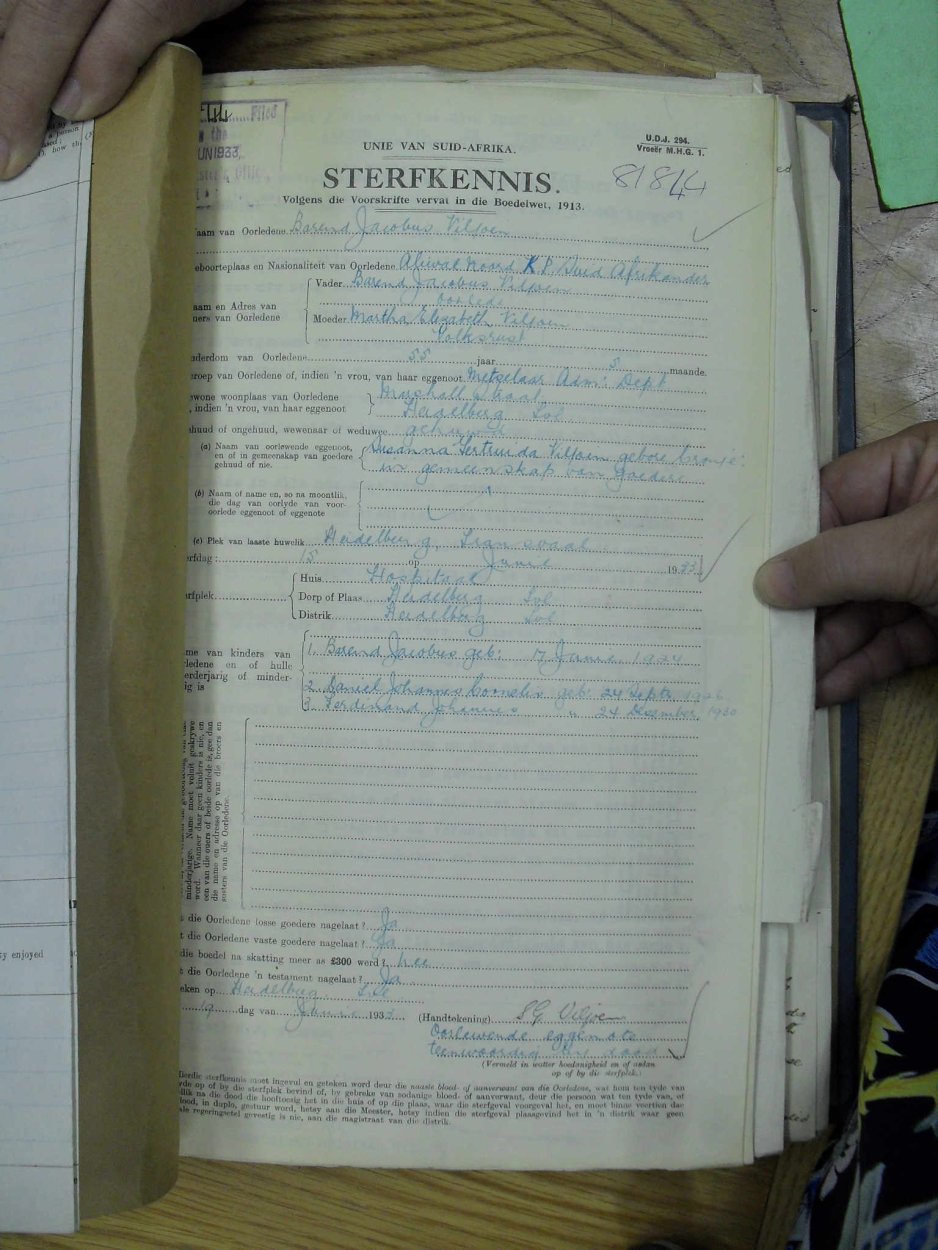 44 Filed
the
UN 1933,
UNIE VAN SUID-AFRIKA.
U.D.J. 294.
Vroeër M.H.G. 1.
STERFKENNIS.
81844
Volgens die Voorskrifte vervat in die Boedelwet, 1913.
aam van Oorledene Barend Jacobus Viljoen
eboorteplaas en Nasionaliteit van Oorledene Aliwal Noord K.P. Suid Afrikander
Vader Barend Jacobus Viljoen
oorlede
aam en Adres van
ners van Oorledene
Moeder Martha Elizabeth Viljoen
Volksrust
derdom van Oorledene 55 jaar 5 maande.
eroep van Oorledene of, indien 'n vrou, van haar eggenoot Metselaar Adm: Dept
wone woonplaas van Oorledene
, indien 'n vrou, van haar eggenoot
Straat
Heidelberg Tvl
huud of ongehuud, wewenaar of weduwee gehuwd
(a) Naam van oorlewende eggenoot,
en of in gemeenskap van goedere
gehuud of nie.
Susanna Gertruida Viljoen gebore Cronje:
in gemeenskap van goedere
(b) Naam of name en, so na moontlik,
die dag van oorlyde van voor-
oorlede eggenoot of eggenote
(c) Plek van laaste huwelik Heidelberg, Transvaal
erfdag: 15 op Junie 1933
Huis Hospitaal
rfplek Dorp of Plaas Heidelberg Tvl
Distrik Heidelberg Tvl
me van kinders van
ledene en of hulle
erderjarig of minder-
ig is
1. Barend Jacobus geb: 17 Junie 1924
2. Daniel Johannes Cornelis geb: 24 Septr 1926
3. Ferdinand Johannes " 24 Desember 1930
minderjarige. Name moet voluit geskrywe
word. Wanneer daar geen kinders is nie, en
een van die ouers of beide oorlede is, gee dan
die name en adresse op van die broers en
susters van die Oorledene.
y enjoyed
t die Oorledene losse goedere nagelaat? Ja
t die Oorledene vaste goedere nagelaat? Ja
die boedel na skatting meer as £300 werd? Nee
t die Oorledene 'n testament nagelaat? Ja
eken op Heidelberg, Tvl
19 dag van Junie 1933
(Handtekening) S G Viljoen
Oorlewende eggenote
teenwoordig by dood
(Vermeld in watter hoedanigheid en of andan
op of by die sterfplek.)
lierdie sterfkennis moet ingevul en geteken word deur die naaste bloed- of aanverwant van die Oorledene, wat ten tyde van
rde op of by die sterfplek bevind of, by gebreke van sodanige bloed- of aanverwant, deur die persoon wat ten tyde van, of
dlik na die dood die hooftoesig het in die huis of op die plaas, waar die sterfgeval voorgeval het, en moet binne veertien dae
lood, in duplo, gestuur word, hetsy aan die Meester, hetsy indien die sterfgeval plaasgevind het in 'n distrik waar geen
ale regeringsetel gevestig is nie, aan die magistraat van die distrik.